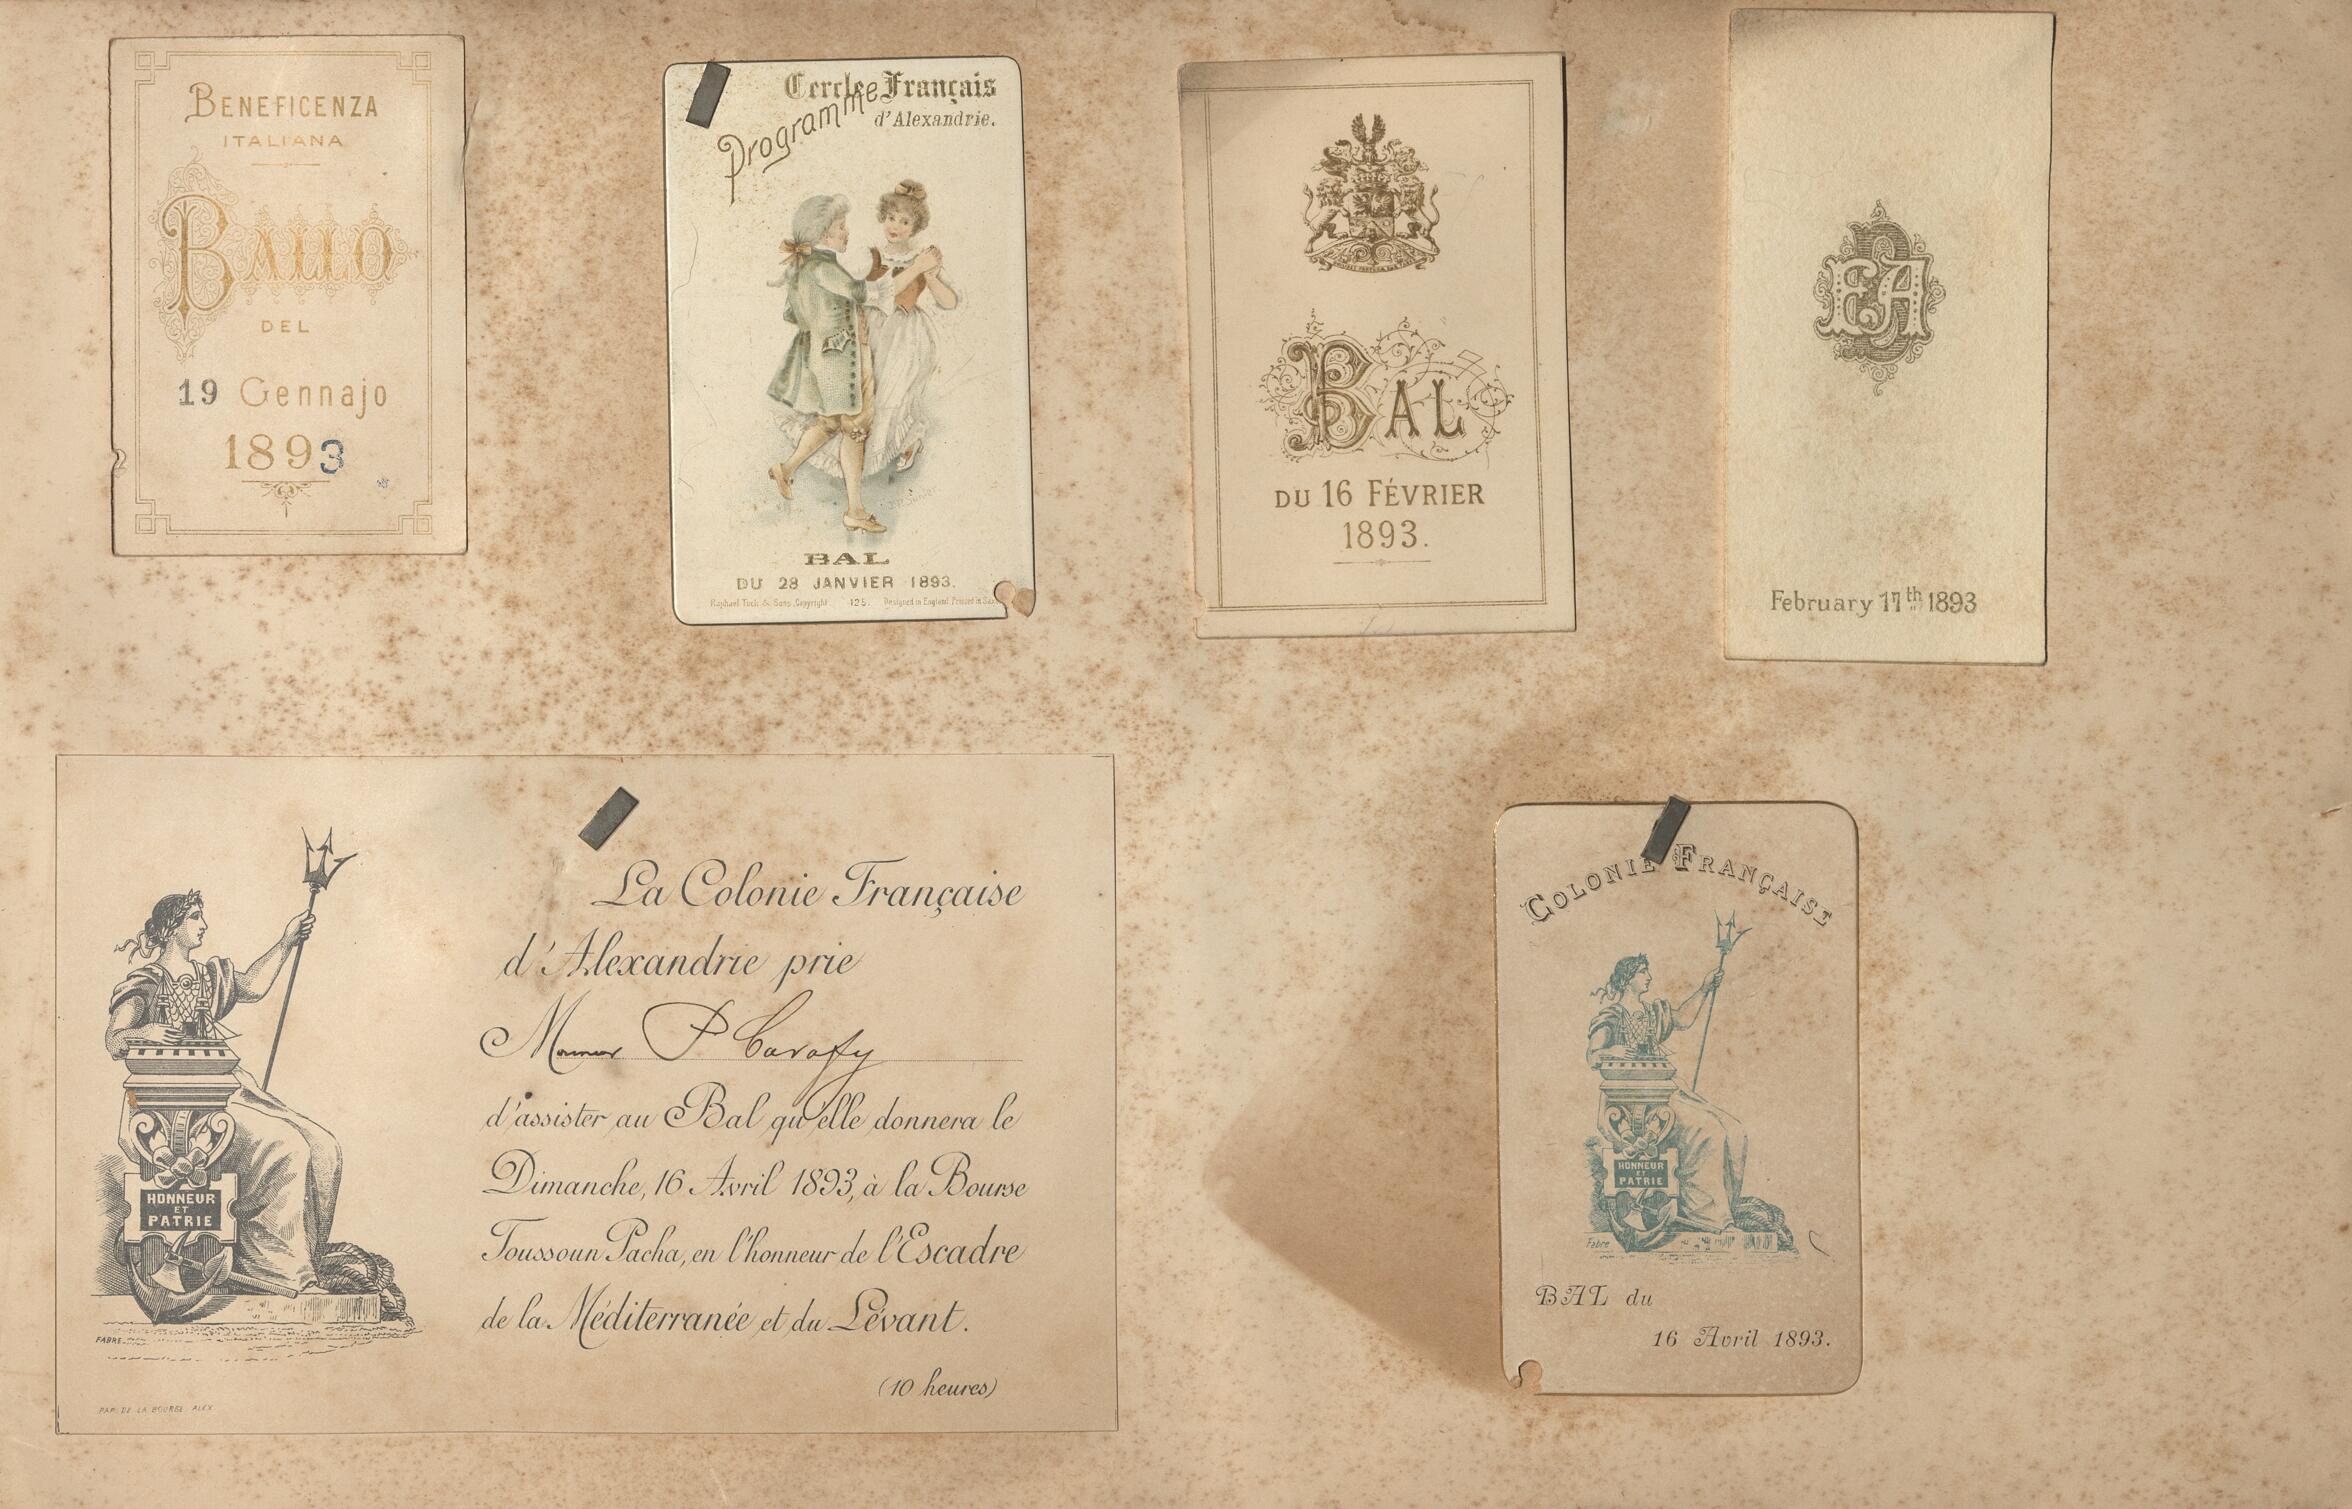 BENEFICENZA
ITALIANA
BALLO
DEL
19 Gennajo
1893
Cercle Français
d'Alexandrie.
Programme
BAL
DU 28 JANVIER 1893.
Raphael Tuck & Sons, Copyright 125. Designed in England. Printed in
BAL
DU 16 FÉVRIER
1893.
EA
February 17th 1893
La Colonie Française
d'Alexandrie prie
Monsieur P Cavafy
d'assister au Bal qu'elle donnera le
Dimanche, 16 Avril 1893, à la Bourse
Toussoun Pacha, en l'honneur de l'Escadre
de la Méditerranée et du Lévant.
(10 heures)
HONNEUR
ET
PATRIE
FABRE
PAP. DE LA BOURSE. ALEX
COLONIE FRANÇAISE
HONNEUR
ET
PATRIE
Fabre
BAL du
16 Avril 1893.